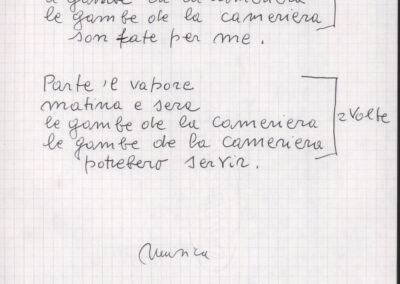 le gambe de la cameriera
son fate per me.
Parte 'l vapore
matina e sera
le gambe de la cameriera
le gambe de la cameriera
potrebero servir.
2 Volte
Musica